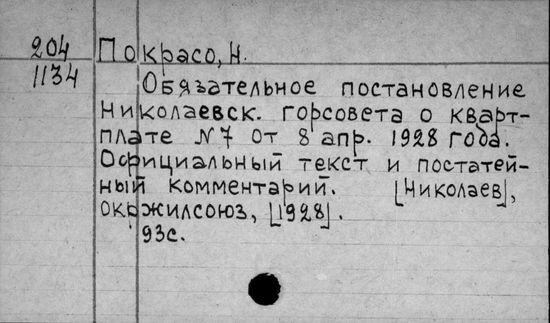 204 Покрасо, Н.
1134
Обязательное постановление
Николаевск. горсовета о кварт-
плате N7 от 8 апр. 1928 года.
Официальный текст и постатей-
ный комментарий. [Николаев],
Окржилсоюз, [1928].
93с.